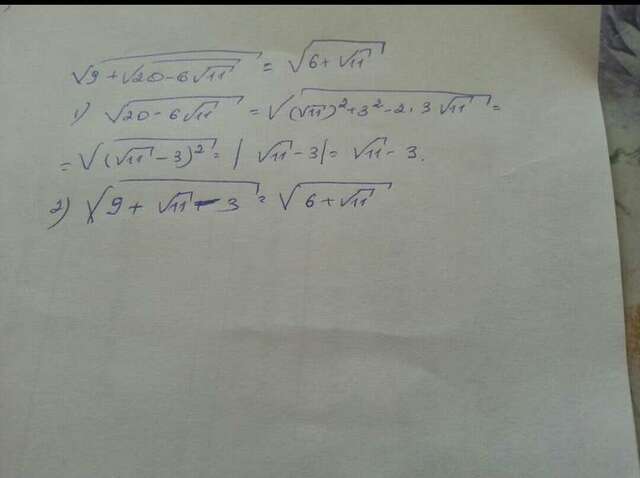 √(9 + √(20 - 6√11)) = √(6 + √11)
1) √(20 - 6√11) = √((√11)² + 3² - 2 · 3√11) =
= √((√11 - 3)²) = |√11 - 3| = √11 - 3.
2) √(9 + √11 - 3) = √(6 + √11)